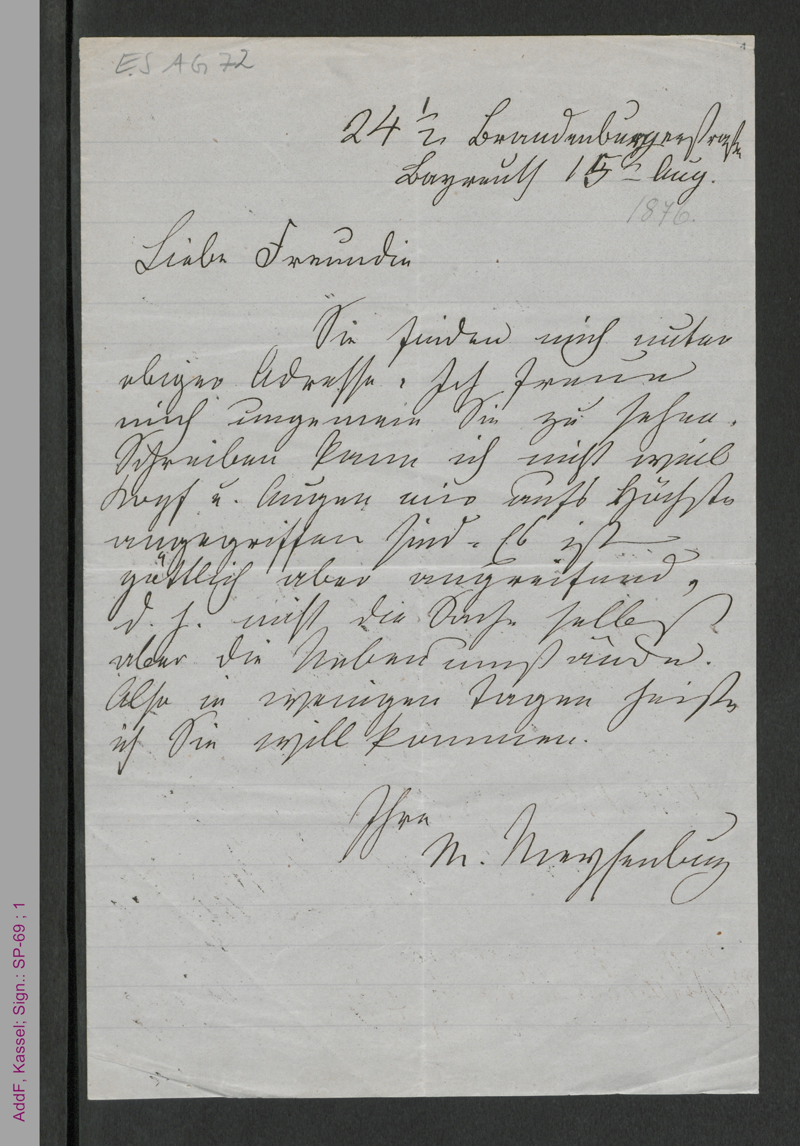 E.S AG 72
24 1/2 Brandenburgerstraße
Bayreuth 15t Aug.
1876.
Liebe Freundin
Sie finden mich unter
obiger Adresse. Ich freue
mich ungemein Sie zu sehen.
Schreiben kann ich nicht weil
Kopf u. Augen mir aufs Höchste
angegriffen sind. Es ist
göttlich aber angreifend,
d. h. nicht die Sache selbst
aber die Nebenumstände.
Also in wenigen Tagen heiße
ich Sie willkommen.
Ihre
M. Meysenbug
AddF, Kassel; Sign.: SP-69 ; 1